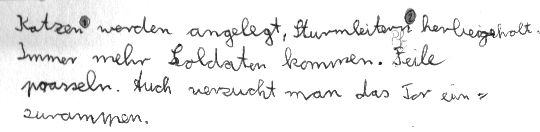 Katzen① werden angelegt, Sturmleitern② herbeigeholt.
Immer mehr Soldaten kommen. Feile
prasseln. Auch versucht man das Tor ein=
zurampen.